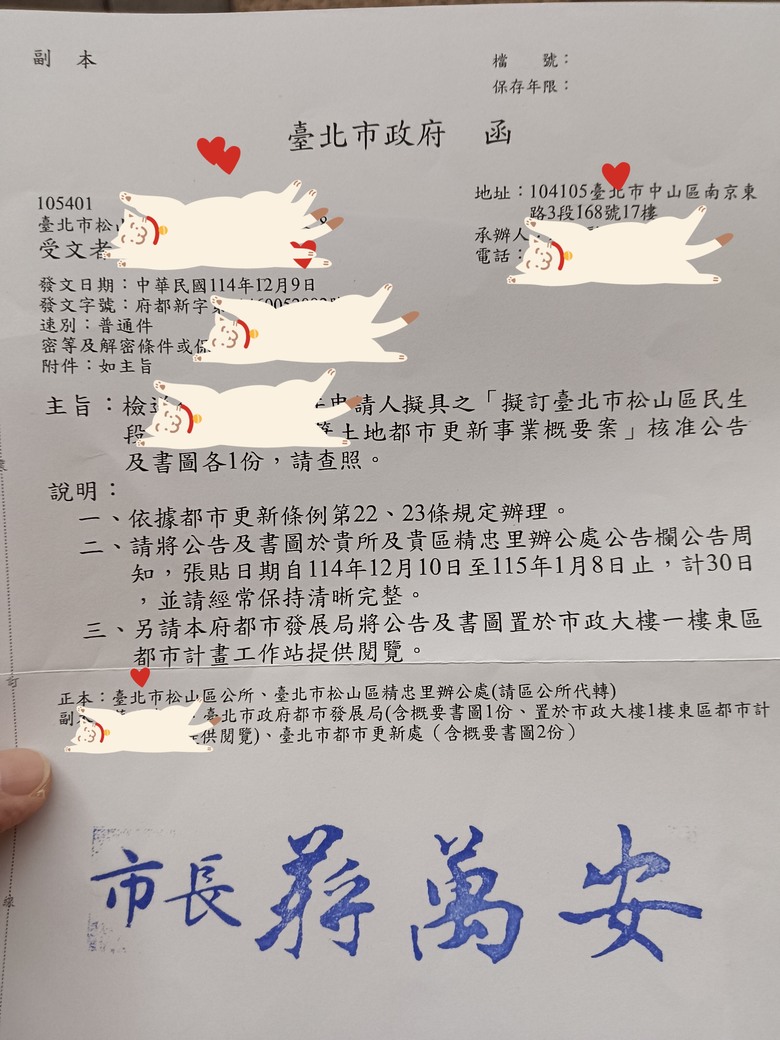 副 本
檔 號：
保存年限：
臺北市政府 函
地址：104105臺北市中山區南京東
路3段168號17樓
承辦人
電話：
105401
臺北市松
受文者
發文日期：中華民國114年12月9日
發文字號：府都新字第
速別：普通件
密等及解密條件或保
附件：如主旨
主旨：檢送 申請人擬具之「擬訂臺北市松山區民生
段 等土地都市更新事業概要案」核准公告
及書圖各1份，請查照。
說明：
一、依據都市更新條例第22、23條規定辦理。
二、請將公告及書圖於貴所及貴區精忠里辦公處公告欄公告周
知，張貼日期自114年12月10日至115年1月8日止，計30日
，並請經常保持清晰完整。
三、另請本府都市發展局將公告及書圖置於市政大樓一樓東區
都市計畫工作站提供閱覽。
正本：臺北市松山區公所、臺北市松山區精忠里辦公處(請區公所代轉)
副 臺北市政府都市發展局(含概要書圖1份、置於市政大樓1樓東區都市計
供閱覽)、臺北市都市更新處（含概要書圖2份）
市長 蔣萬安
線